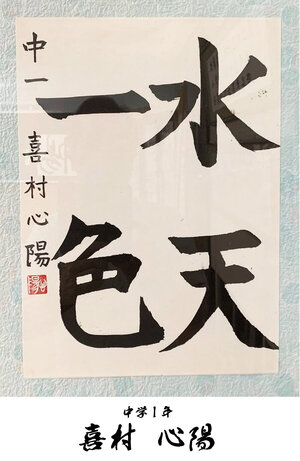 水天
一色
中一 喜村心陽
中学1年
喜村 心陽